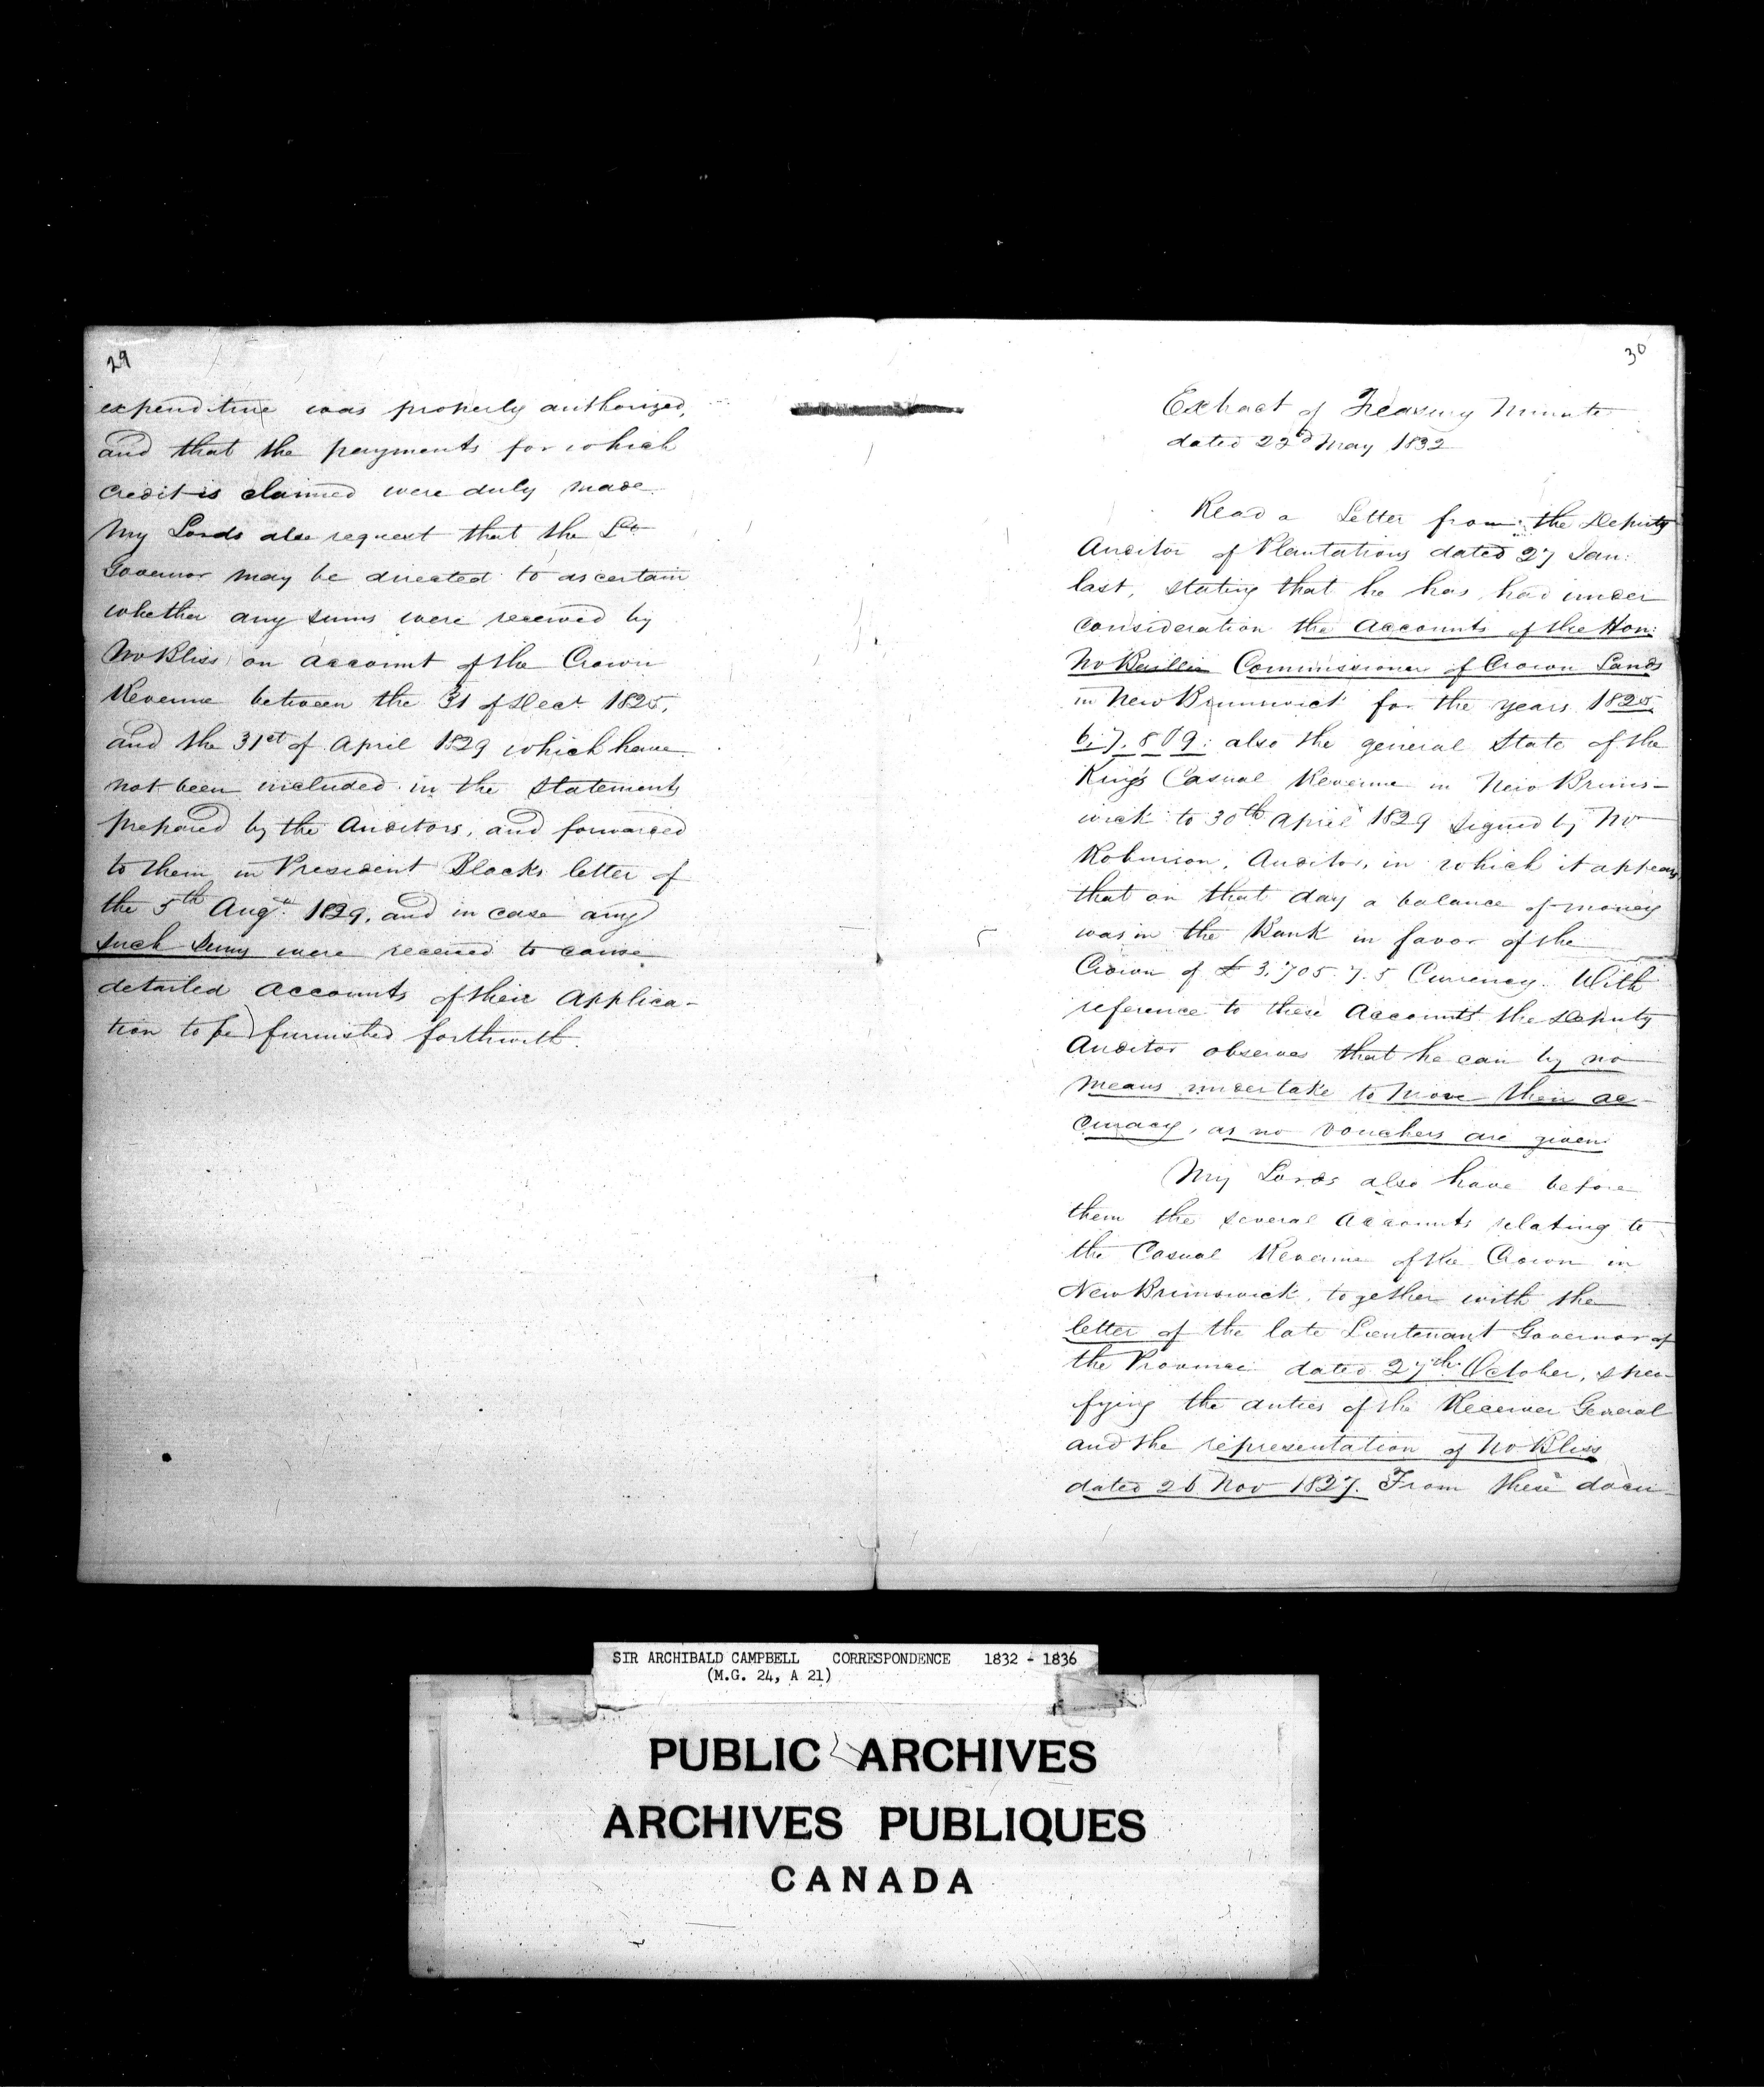 29
expenditure was properly authorized,
and that the payments for which
credit is claimed were duly made.
My Lords also request that the Lt
Governor may be directed to ascertain
whether any sums were received by
Mr Bliss on account of the Crown
Revenue between the 31 of Dect 1825,
and the 31st of April 1829 which have
not been included in the Statements
prepared by the Auditors, and forwarded
to them in President Blacks letter of
the 5th Augt 1829, and in case any
such sums were received to cause
detailed accounts of their applica-
tion to be furnished forthwith.
30
Extract of Treasury Minute
dated 22d May 1832
Read a Letter from the Deputy
Auditor of Plantations dated 27 Jan:
last, stating that he has had under
consideration the Accounts of the Hon:
Mr Baillie Commissioner of Crown Lands
in New Brunswick for the years 1825
6, 7, 8 & 9: also the general State of the
King's Casual Revenue in New Bruns-
wick to 30th April 1829 signed by Mr
Robinson, Auditor, in which it appears
that on that day a balance of money
was in the Bank in favor of the
Crown of £ 3,705.7.5 Currency. With
reference to these Accounts the Deputy
Auditor observes that he can by no
means undertake to prove their ac-
curacy, as no vouchers are given.
My Lords also have before
them the several Accounts relating to
the Casual Revenue of the Crown in
New Brunswick, together with the
letter of the late Lieutenant Governor of
the Province dated 27th October, speci-
fying the duties of the Receiver General
and the representation of Mr Bliss
dated 26 Nov 1827. From these docu-
SIR ARCHIBALD CAMPBELL CORRESPONDENCE 1832 - 1836
(M.G. 24, A 21)
PUBLIC ARCHIVES
ARCHIVES PUBLIQUES
CANADA